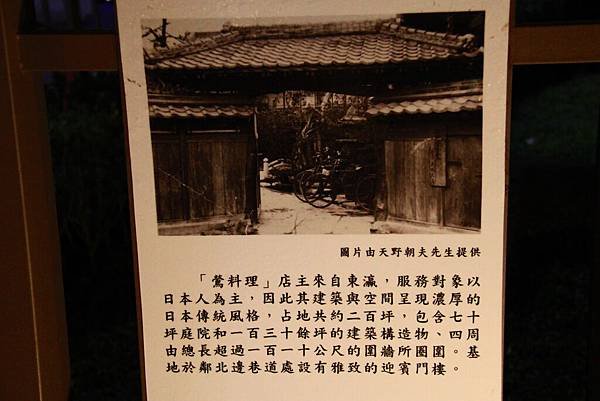 圖片由天野朝夫先生提供
「鶯料理」店主來自東瀛，服務對象以
日本人為主，因此其建築與空間呈現濃厚的
日本傳統風格，占地共約二百坪，包含七十
坪庭院和一百三十餘坪的建築構造物、四周
由總長超過一百一十公尺的圍牆所圈圍。基
地於鄰北邊巷道處設有雅致的迎賓門樓。